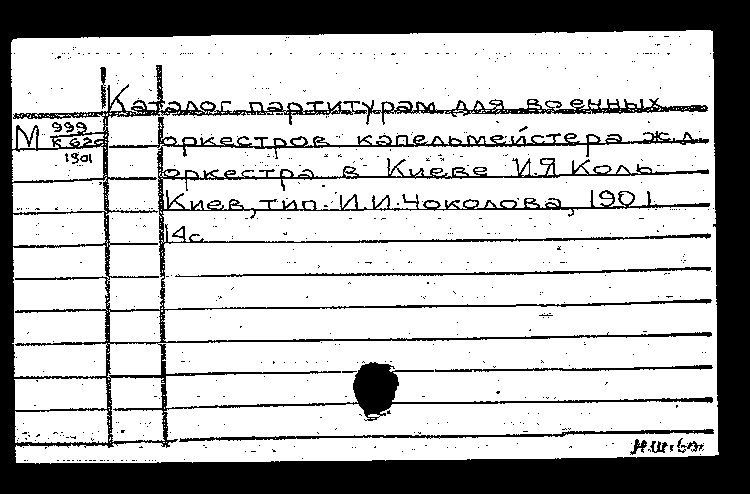 Каталог партитурам для военных
М 999
К 620
1901
оркестров капельмейстера ж.д.
оркестра в Киеве И.Я Коль
Киев, тип. И.И. Чоколова, 1901
14с